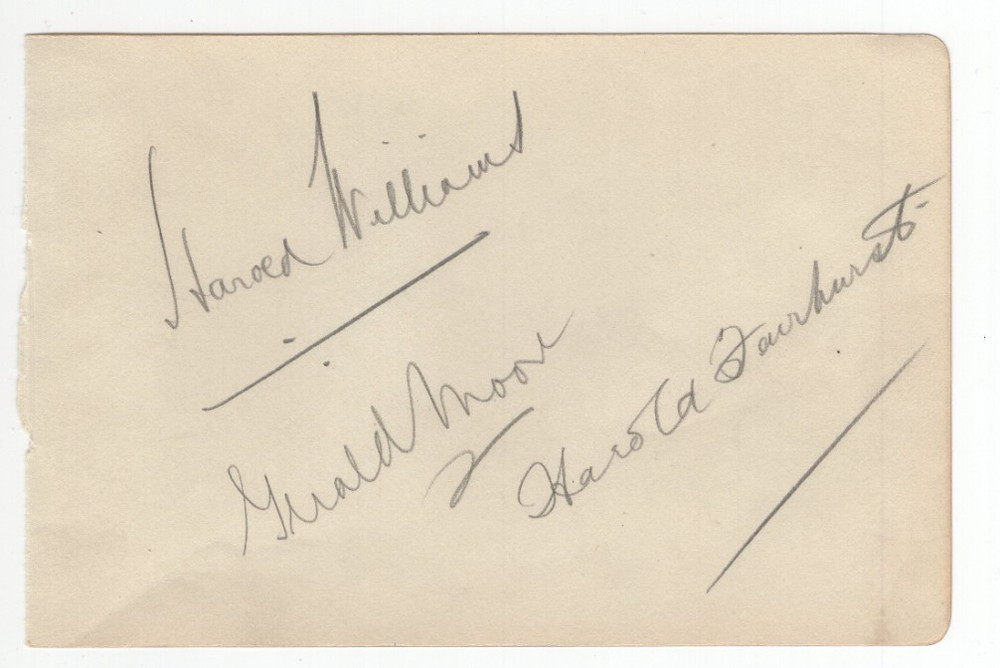 Harold Williams
Gerald Moore
Harold Fairhurst